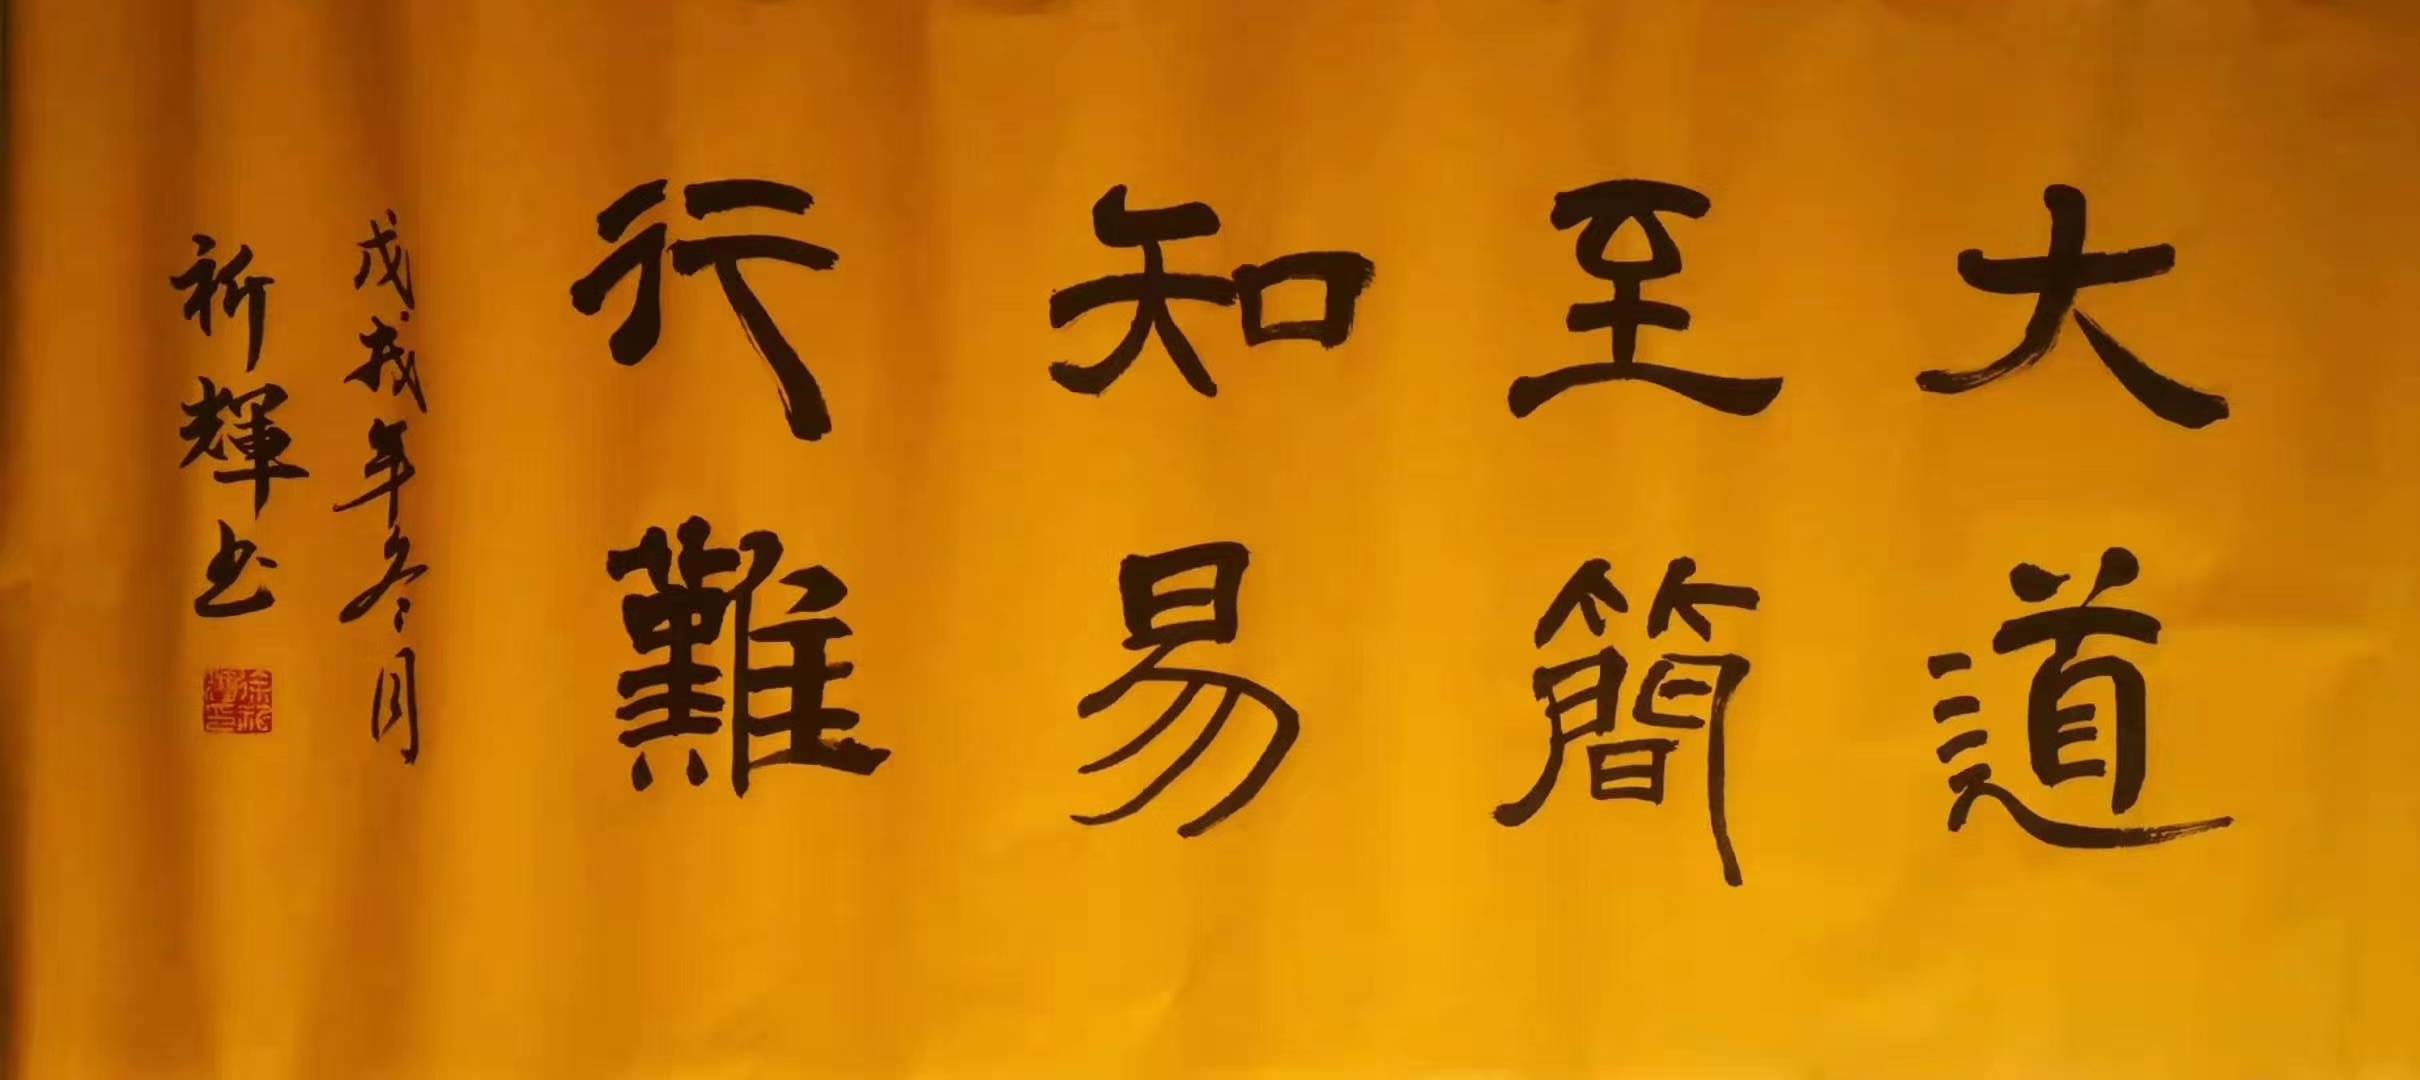 大道
至簡
知易
行難
戊戌年冬月
祈輝书